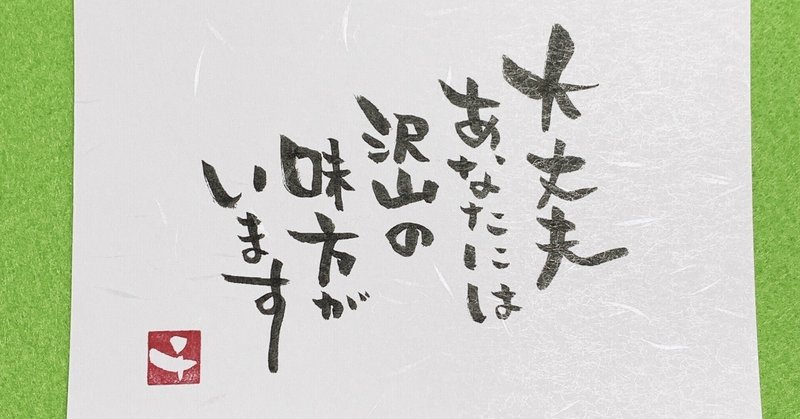 大丈夫
あなたには
沢山の
味方が
います